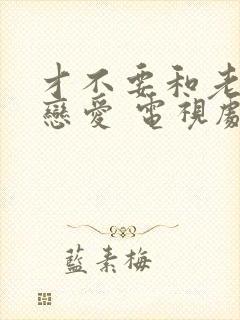 才不要和老
戀愛 電視劇
藍素梅